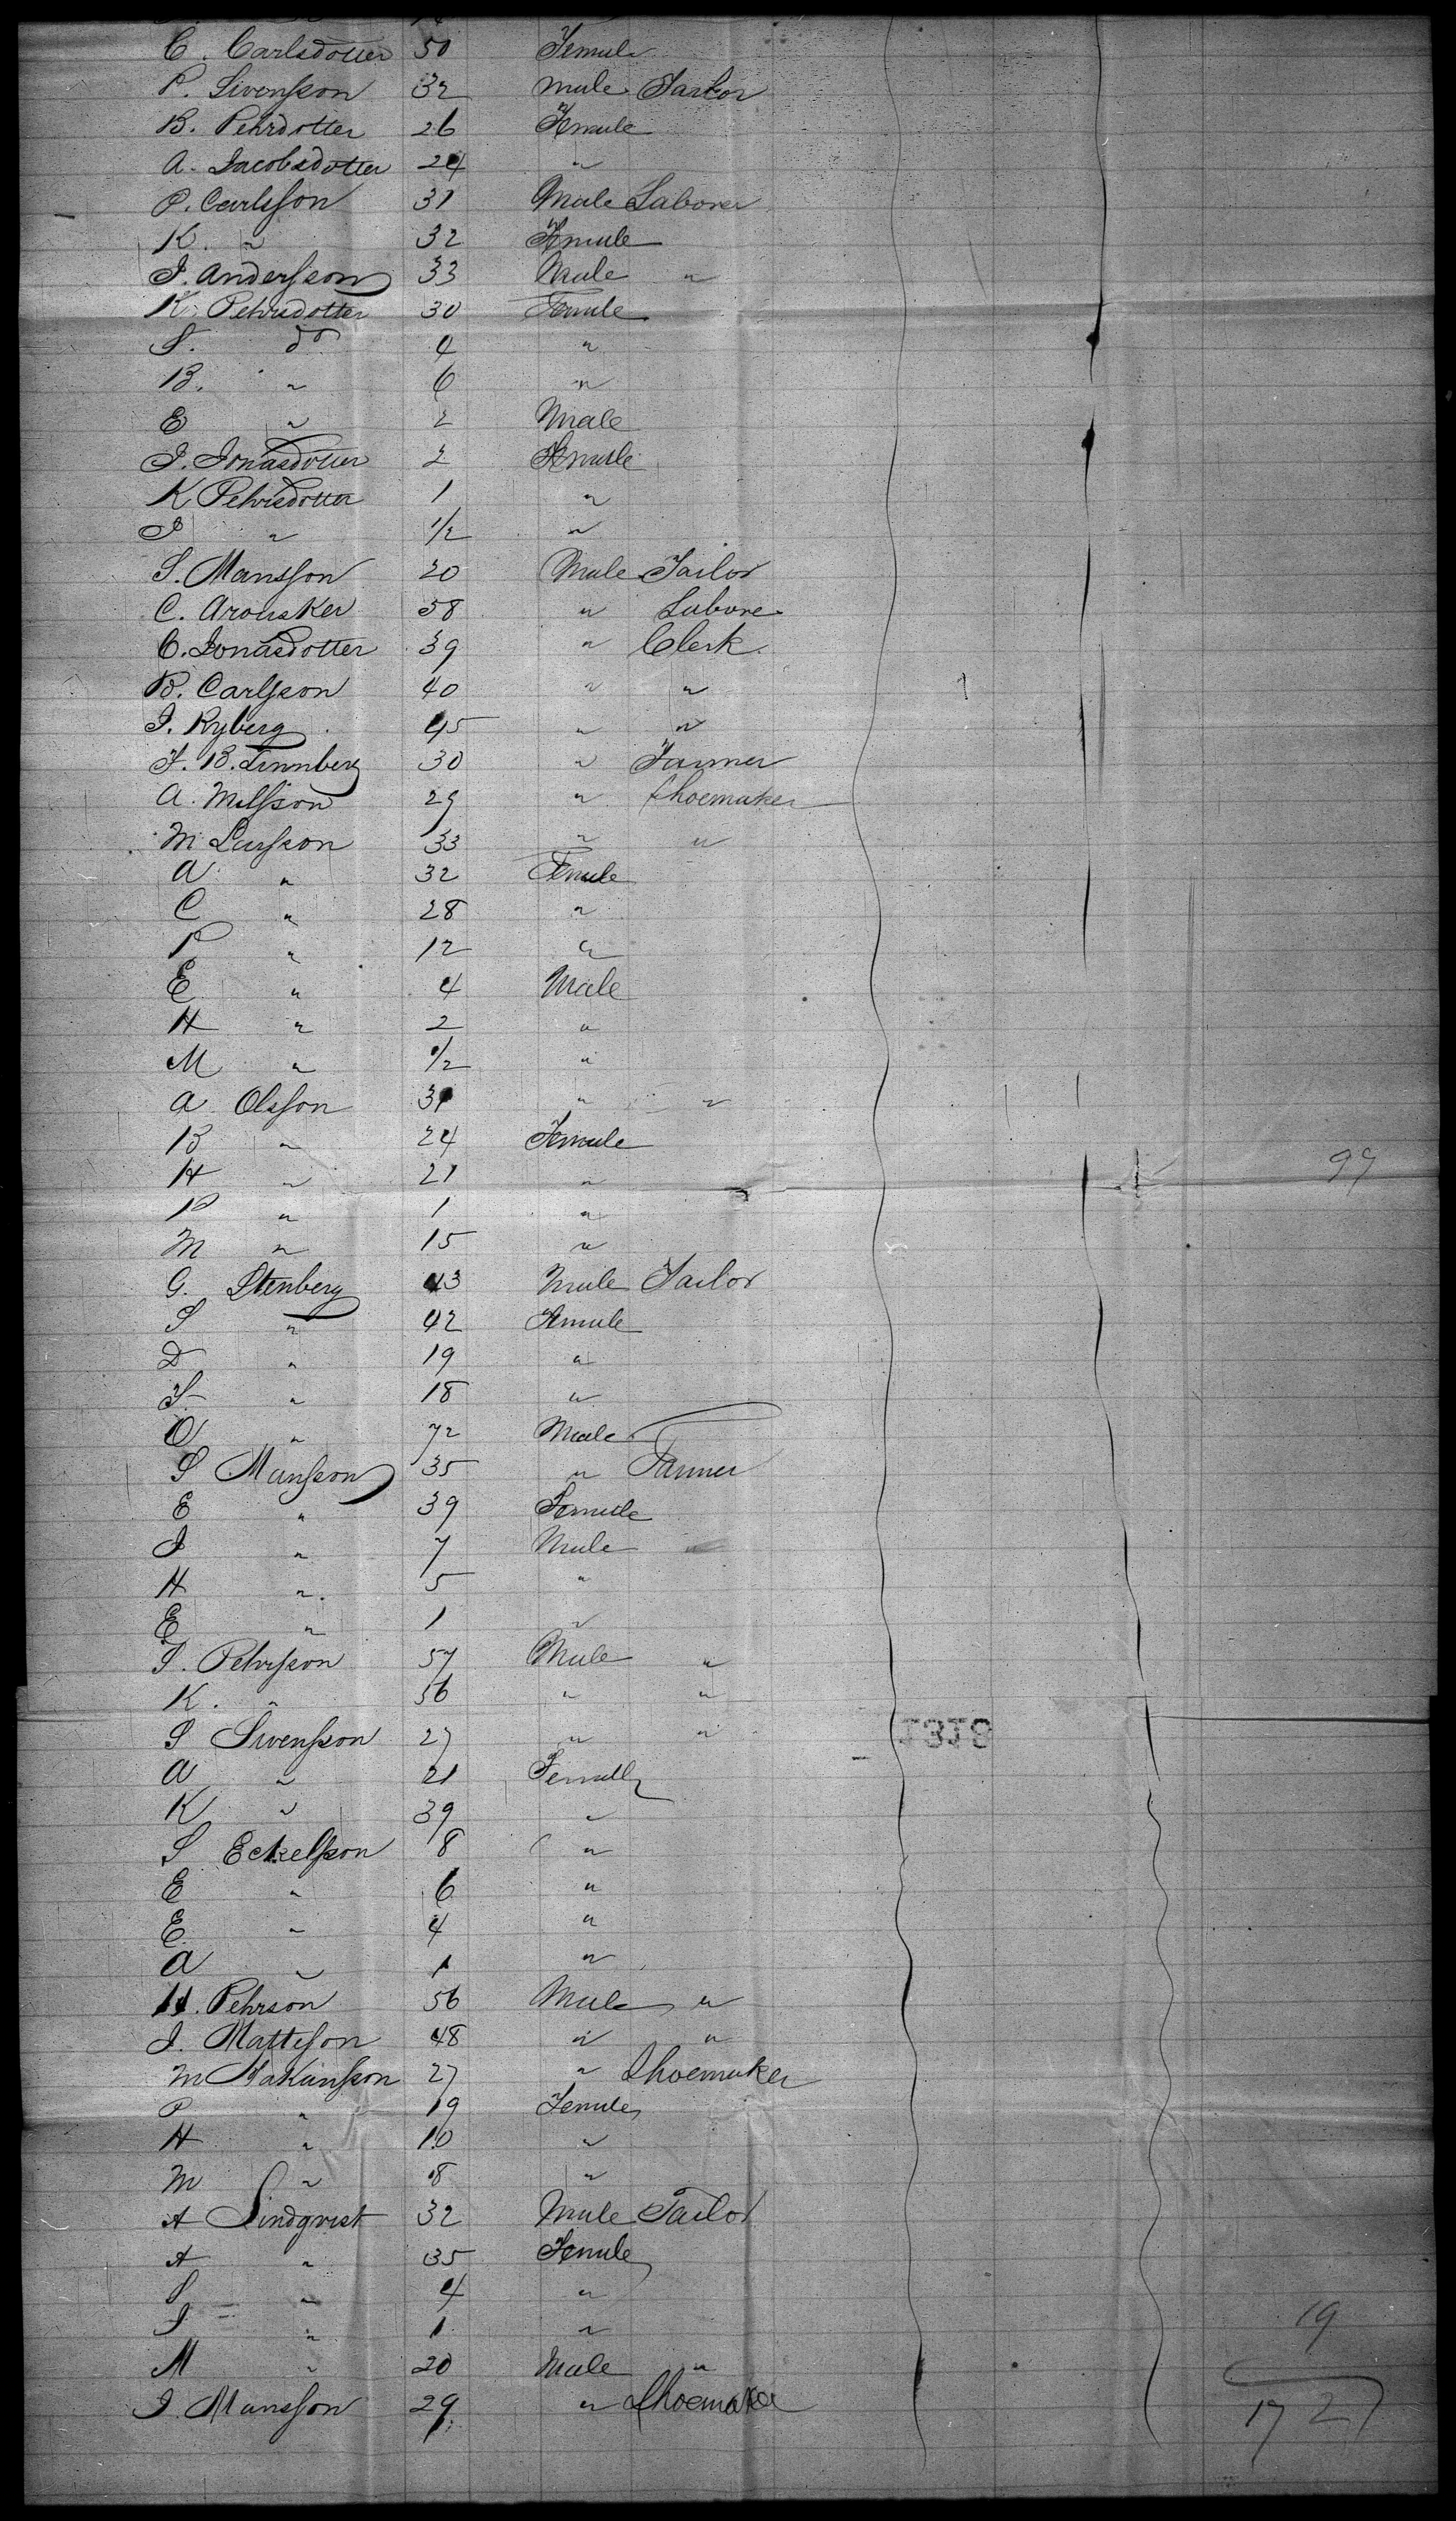 C. Carlsdotter 50 Female
P. Svensson 32 male Tailor
B. Pehrdotter 26 Female
A. Jacobsdotter 24 "
P. Carlsson 31 Male Laborer
K. " 32 Female
J. Andersson 33 Male "
K. Pehrsdotter 30 Female
S. do 4 "
B. " 6 "
E " 2 Male
J. Jonasdotter 2 Female
K Pehrsdotter 1 "
J " 1/2 "
S. Mansson 20 Male Tailor
C. Arousker 58 " Labore
C. Jonasdotter 39 " Clerk
B. Carlsson 40 " "
J. Ryberg 45 " "
F. B. Linnberg 30 " Farmer
A. Nilsson 29 " Shoemaker
M Larsson 33 " "
A " 32 Female
C " 28 "
P " 12 "
E " 4 Male
H " 2 "
M " 1/2 "
A Olsson 31 " "
B " 24 Female
H " 21 "
P " 1 "
M " 15 "
G. Stenberg 43 Male Tailor
S " 42 Female
D " 19 "
S. " 18 "
O " 72 Male
S Mansson 35 " Farmer
E " 39 Female
J " 7 Male
H " 5 "
E " 1 "
S. Pehrsson 57 Male "
K. " 56 " "
S Svensson 27 " "
A " 21 Female
K " 39 "
S Eckelsson 8 "
E " 6 "
E " 4 "
A " 1 "
H. Pehrson 56 Male "
J. Mattsson 48 " "
M Hakansson 27 " Shoemaker
P " 19 Female
H " 10 "
M " 8 "
A Lindqvist 32 Male Tailor
A " 35 Female
S " 4 "
J " 1 "
M " 20 Male "
J. Mansson 29 " Shoemaker
99
19
17 27